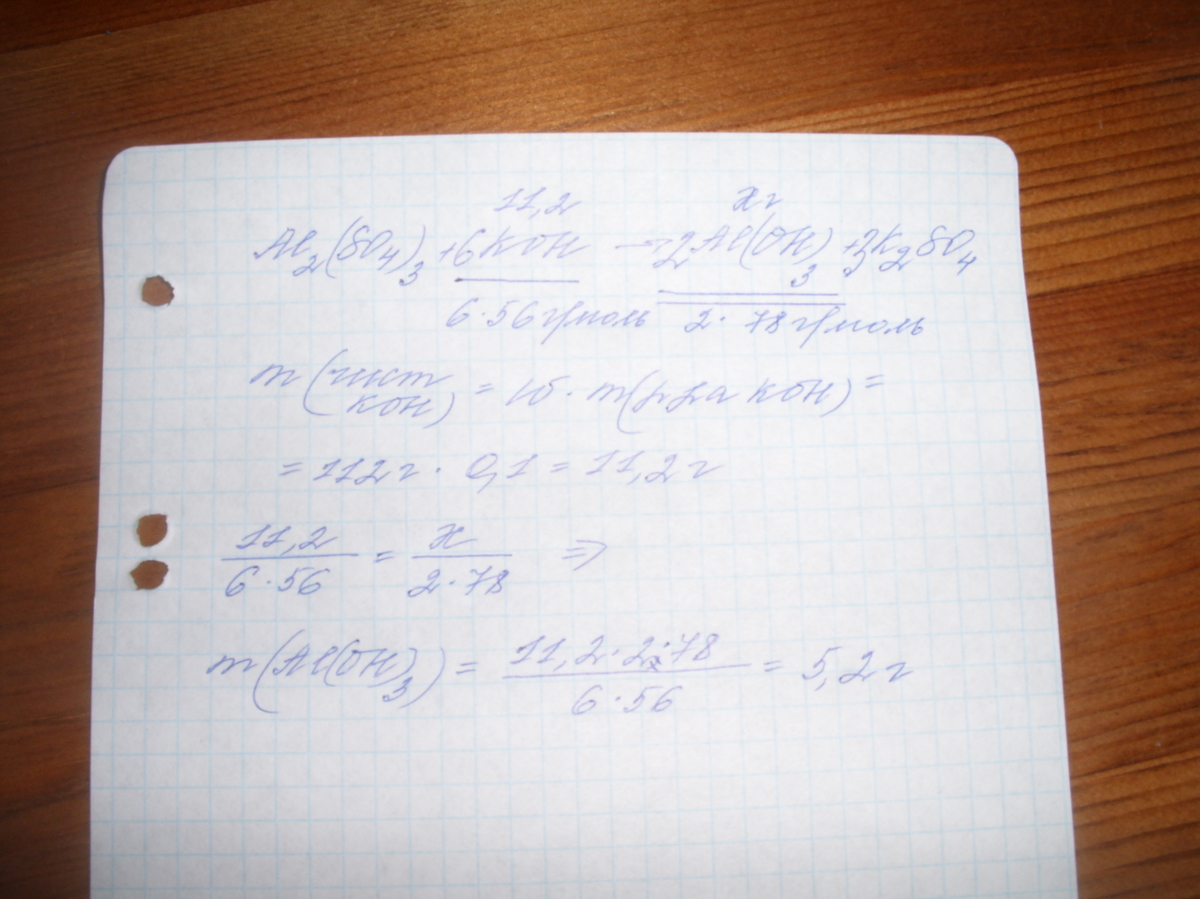 11,2 x г
Al₂(SO₄)₃ + 6KOH → 2Al(OH)₃ + 3K₂SO₄
6·56 г/моль 2·78 г/моль
m(чист KOH) = ω · m(р-ра KOH) =
= 112 г · 0,1 = 11,2 г
11,2/6·56 = x/2·78 ⇒
m(Al(OH)₃) = 11,2·2·78/6·56 = 5,2 г